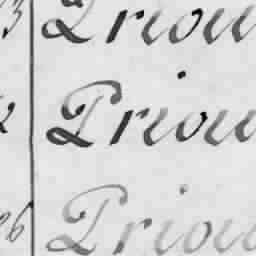 3 Priou
2 Priou
26 Priou